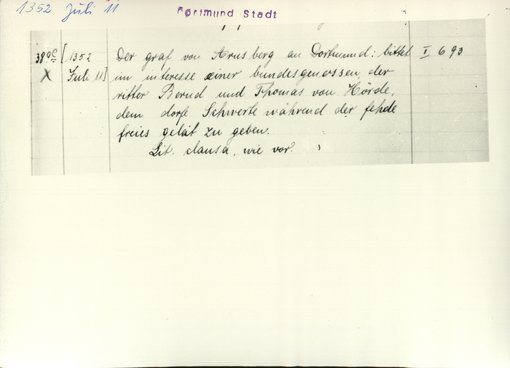 1352 Juli 11
Dortmund Stadt
[1352 Der graf von Arnsberg an Dortmund: bittet I 693
Juli 11] im interesse einer bundesgenossen, der
ritter Bernd und Thomas von Hörde,
dem dorfe Schwerte während der fehde
freies geleit zu geben.
Lit. clausa, wie vor.